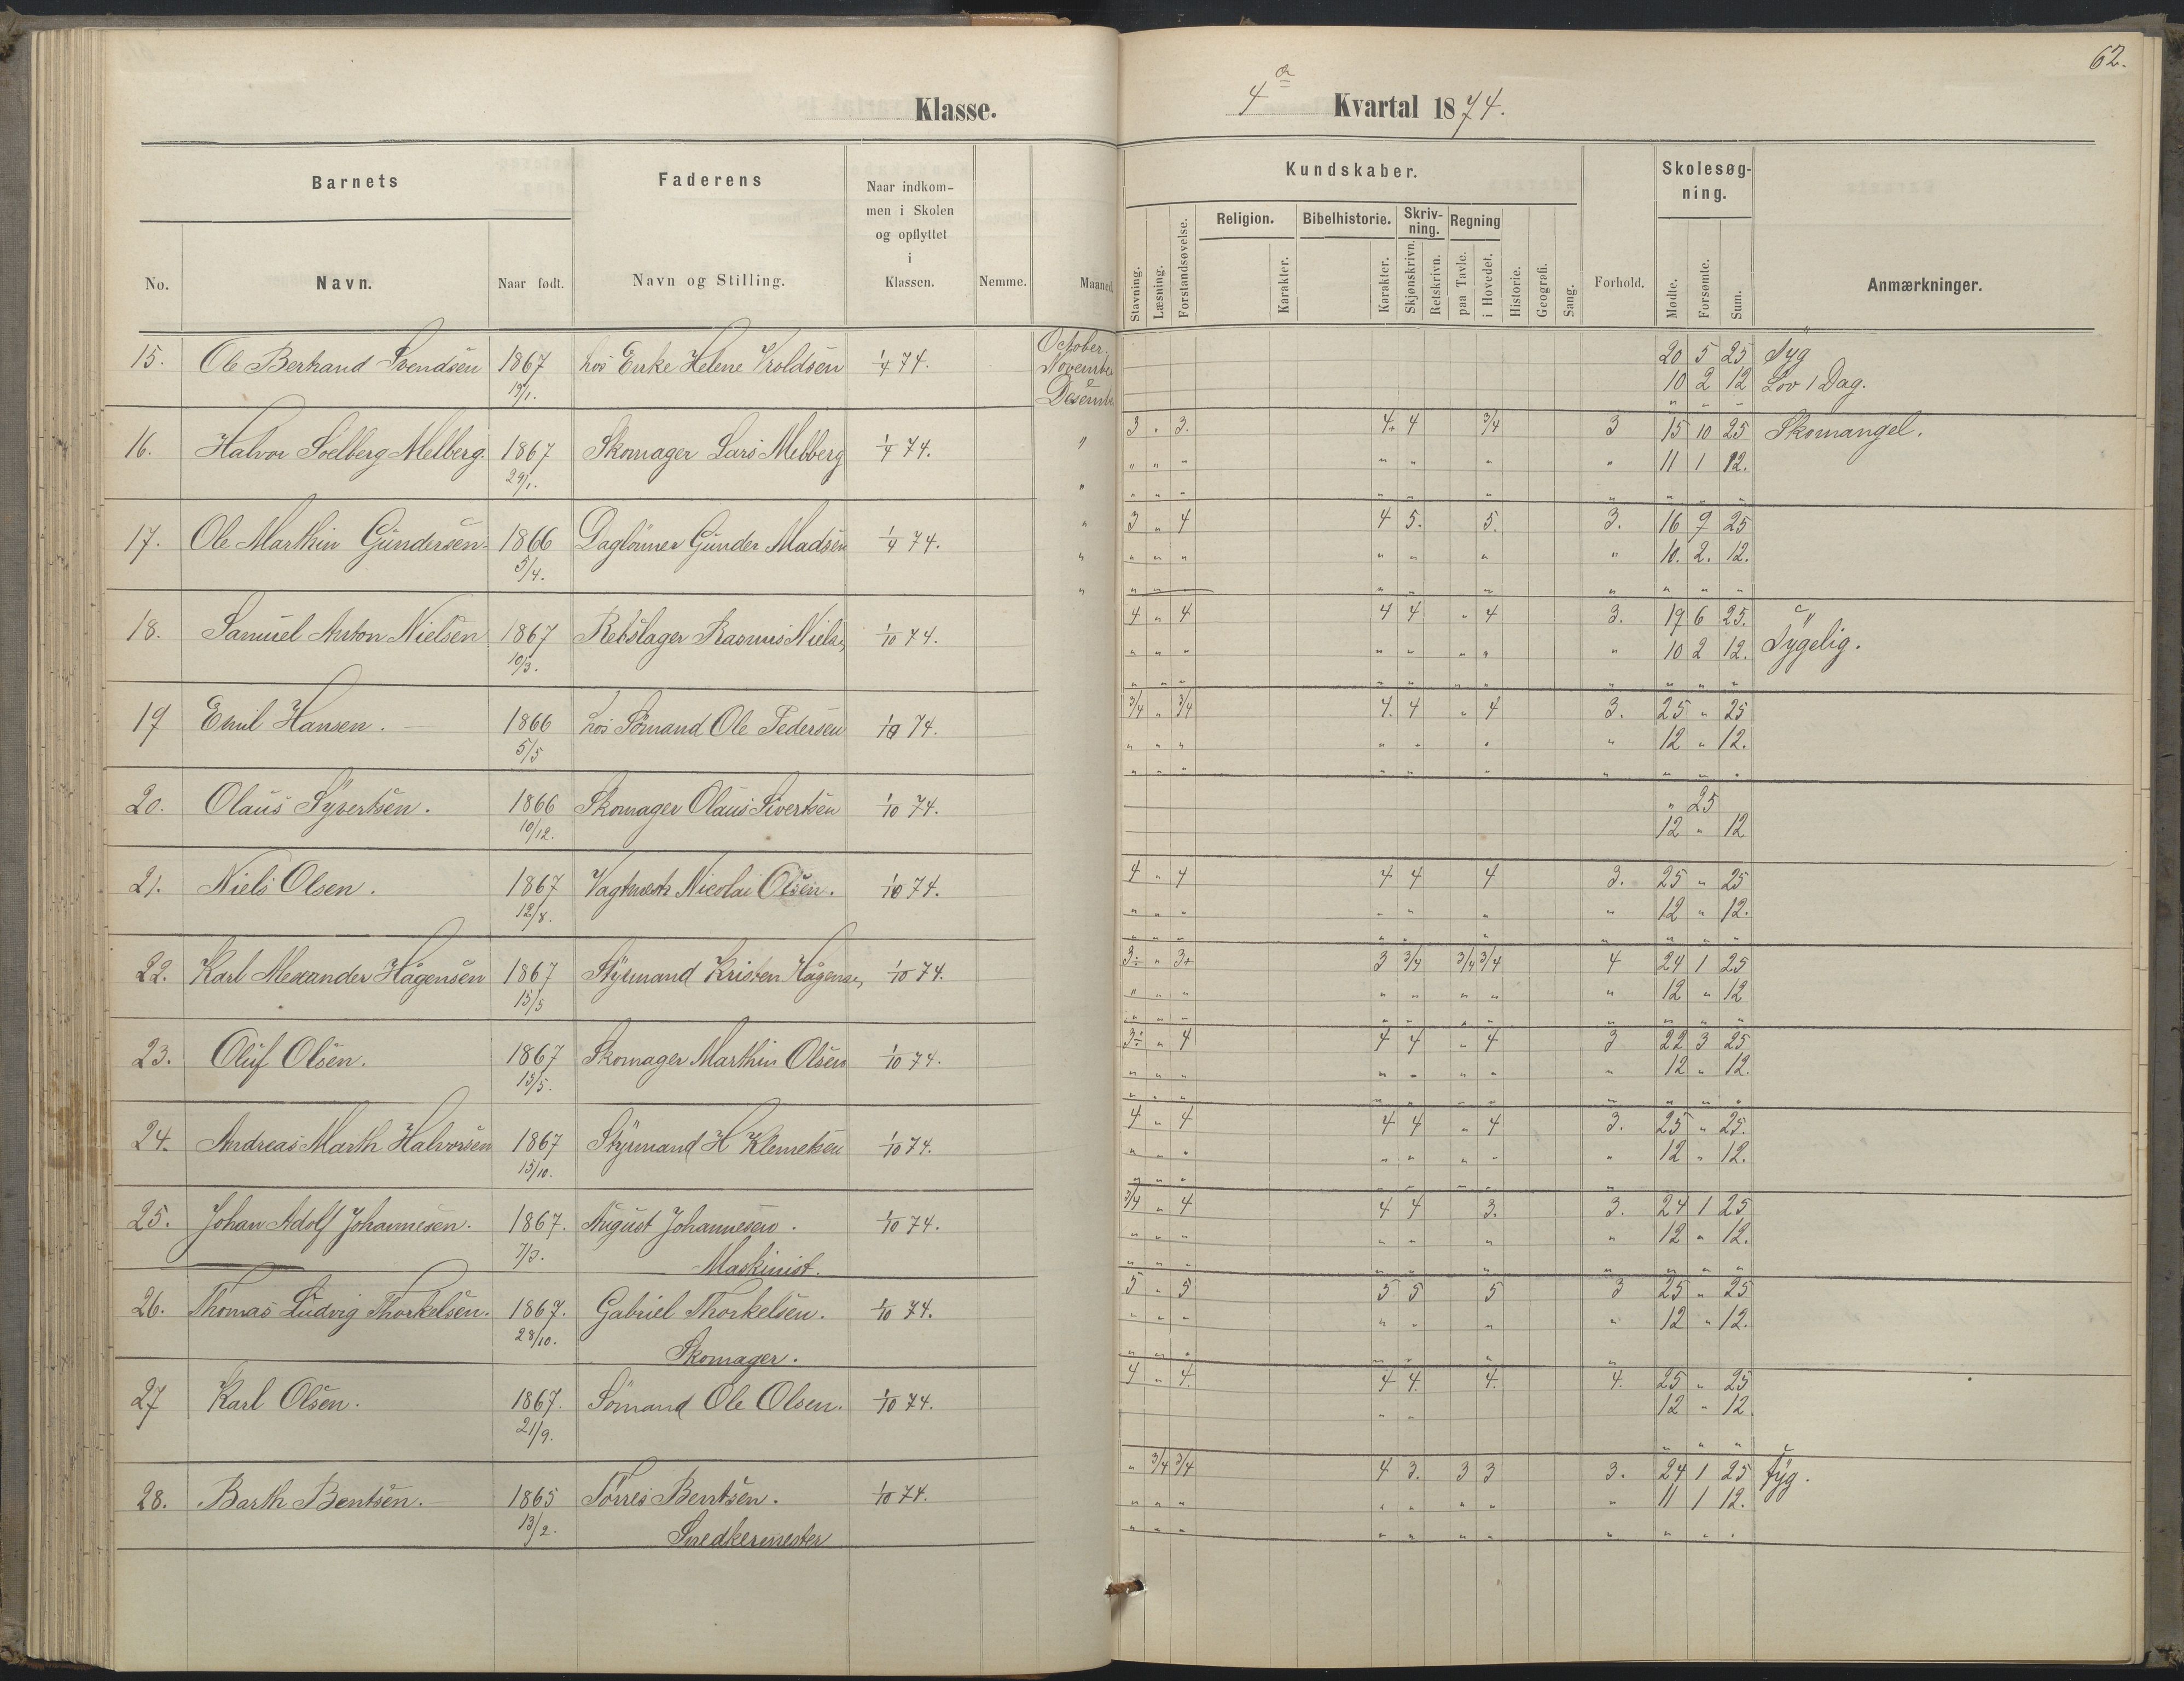 62.
Klasse.
4de Kvartal 1874.
Barnets
Faderens
Naar indkom-
men i Skolen
og opflyttet
i
Klassen.
No.
Navn.
Naar født.
Navn og Stilling.
Nemme.
Maaned.
Kundskaber.
Stavning.
Læsning.
Forstandsøvelse.
Religion.
Karakter.
Bibelhistorie.
Karakter.
Skriv-
ning.
Skjønskrivn.
Retskrivn.
Regning
paa Tavle.
i Hovedet.
Historie.
Geografi.
Sang.
Forhold.
Skolesøg-
ning.
Mødte.
Forsømte.
Sum.
Anmærkninger.
15. Ole Berhand Svendsen 1867 hos Enke Helene Vroldsen 1/4 74. October. 20 5 25 Syg
19/1. November 10 2 12 Lov 1 Dag.
Desember " " "
16. Halvor Soelberg Melberg. 1867 Skomager Lars Melberg 1/4 74. 3 " 3. 4. 4 3/4 3 15 10 25 Skomangel.
29/1. " " " " " " " 11 1 12.
17. Ole Marthin Gundersen 1866 Daglönner Gunder Madsen 1/4 74. 3 " 4 4 5. 5. 3. 16 9 25
5/4. " " " " " " " 10. 2. 12.
18. Samuel Anton Nielsen 1867 Rebslager Rasmus Niels. 1/10 74. 4 " 4 4 4 " 4 3. 19 6 25. "
10/3. " " " " " " " " 10 2 12. Sygelig.
19 Emil Hansen. 1866 hos Sömand Ole Pedersen 1/10 74. 3/4 " 3/4 4. 4 " 4 3. 25 " 25
5/5 " " " " " " " 12 " 12.
20. Olaus Syvertsen. 1866 Skomager Olaus Sivertsen 1/10 74. " 25
10/12. 12 " 12
21. Niels Olsen. 1867 Nicolai Olsen. 1/10 74. 4 " 4 4 4 4 3. 25 " 25
12/8. " " " " " " " 12 " 12.
22. Karl Alexander Hagensen 1867 Styrmand Kristen Hagensen 1/10 74. 3÷ " 3+ 3 3/4 3/4 3/4 4 24 1 25
15/5 " " " " " " " " 12 " 12
23. Oluf Olsen. 1867 Skomager Marthin Olsen 1/10 74. 3÷ " 4 4 4 " 4 3 22 3 25
15/5. " " " " " " " " 12 " 12.
24. Andreas Marth Halvorsen 1867 Styrmand H Klemetsen 1/10 74. 4 " 4 4 4 " 4 3. 25 " 25.
15/10. " " " " " " " " 12 " 12.
25. Johan Adolf Johannesen. 1867. August Johannesen. 1/10 74. 3/4 " 4 4 4 3. 3. 24 1 25
7/3. Maskinist. " " " " " " " 12 " 12.
26. Thomas Ludvig Thorkelsen. 1867. Gabriel Thorkelsen. 1/10 74. 5 " 5 5 5 5 3 25 " 25
28/10. Skomager. " " " " " " " 12 " 12.
27 Karl Olsen. 1867. Sömand Ole Olsen. 1/10 74. 4 " 4. 4 4. 4. 4. 25 " 25
21/9. " " 12 " 12.
28. Barth Bentsen. 1865 Törres Bentsen. 1/10 74. " 3/4 3/4 4 3. 3 3 3. 24 1 25 Syg.
13/2. Snedkermester " " " " " " " " 11 1 12.